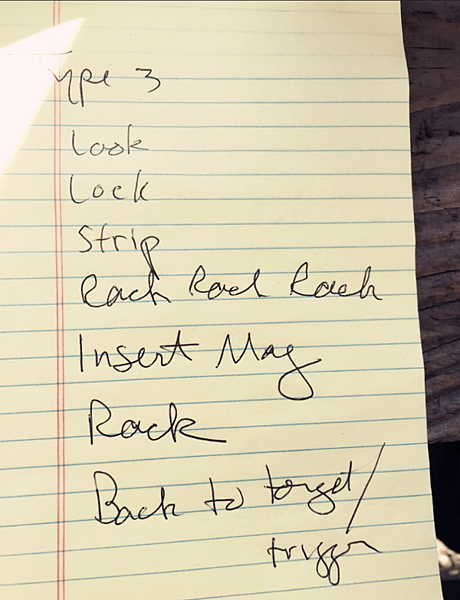 Type 3
Look
Lock
Strip
Rack Rack Rack
Insert Mag
Rack
Back to target/
trigger